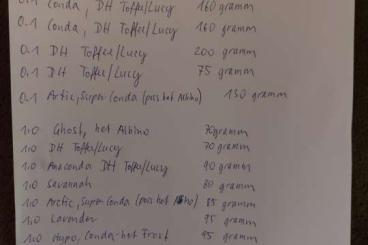 0.1 Conda, DH Toffee/Lucy 160 gramm
0.1 Conda, DH Toffee/Lucy 160 gramm
0.1 DH Toffee/Lucy 200 gramm
0.1 DH Toffee/Lucy 75 gramm
0.1 Artic, Super Conda (poss het Albino) 130 gramm
1.0 Ghost, het Albino 70gramm
1.0 DH Toffee/Lucy 70 gramm
1.0 Anaconda DH Toffee/Lucy 90 gramm
1.0 Savannah 80 gramm
1.0 Artic, Super Conda (poss het Albino) 85 gramm
1.0 Lavender 95 gramm
1.0 Hypo, Conda het Frost 95 gramm